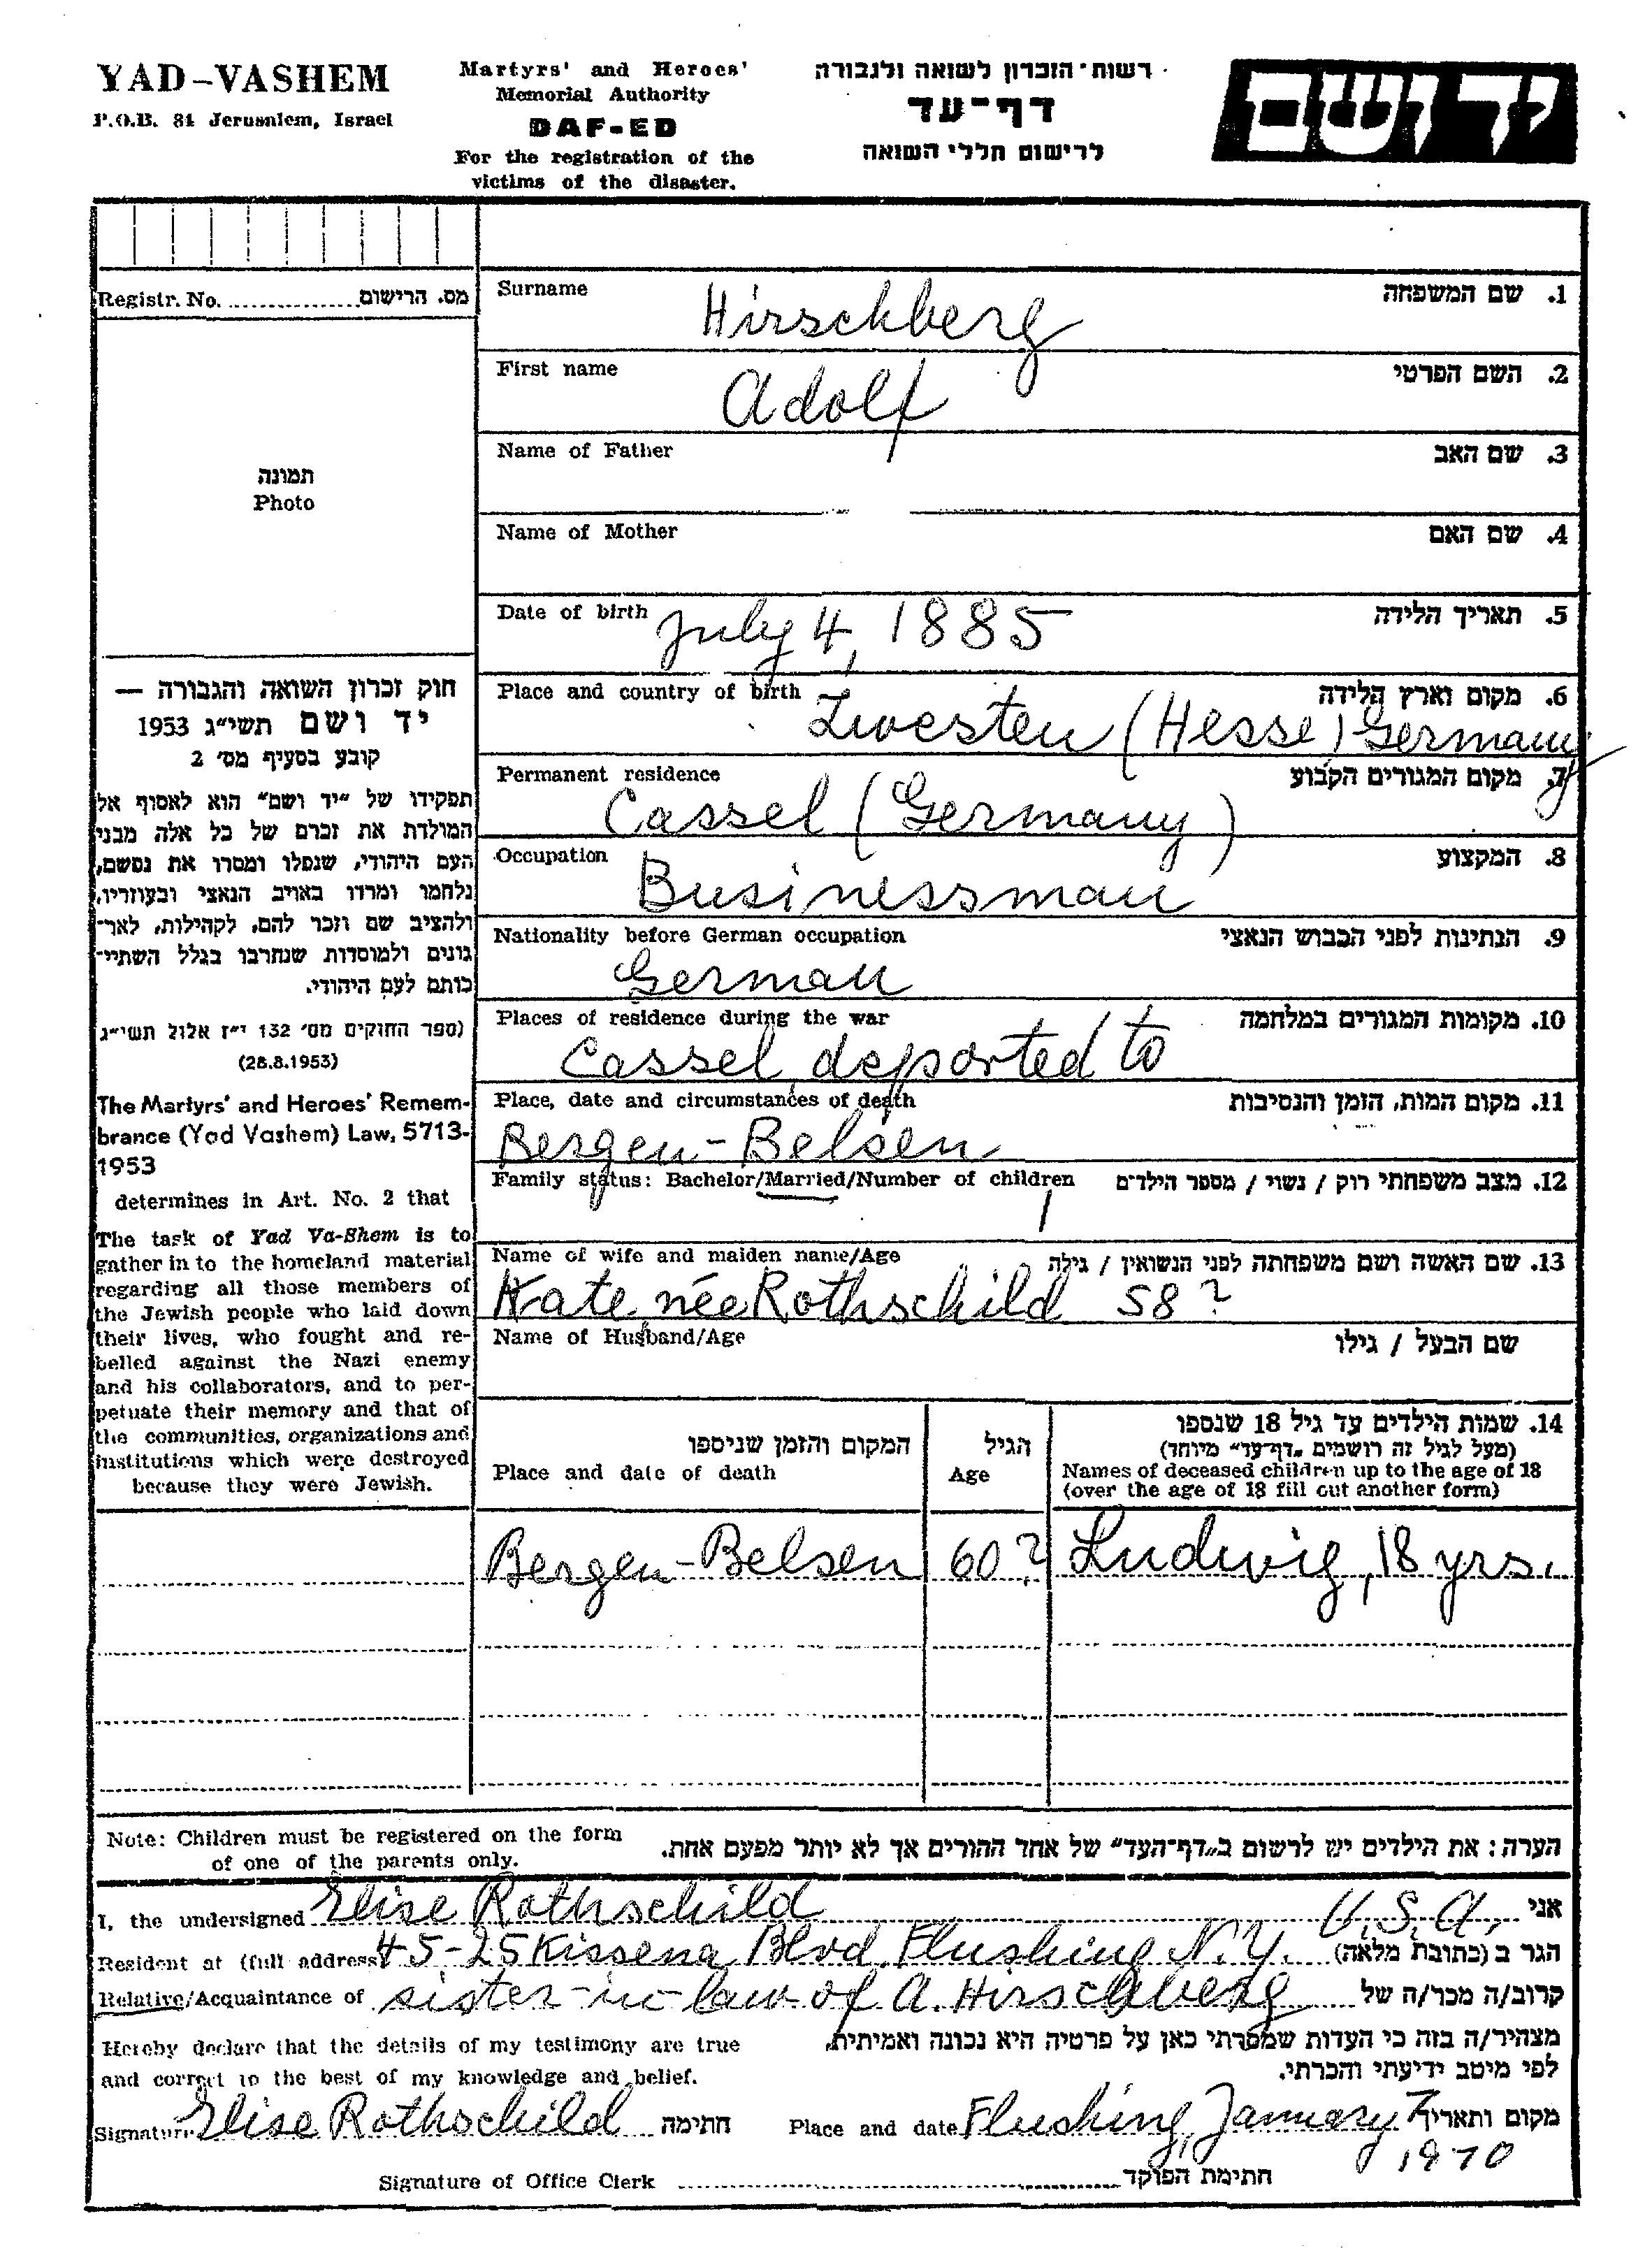 YAD-VASHEM
P.O.B. 84 Jerusalem, Israel
Martyrs' and Heroes'
Memorial Authority
DAF-ED
For the registration of the
victims of the disaster.
רשות־הזכרון לשואה ולגבורה
דף־עד
לרישום חללי השואה
יד ושם
Registr. No. מס. הרישום
תמונה
Photo
חוק זכרון השואה והגבורה —
יד ושם תשי״ג 1953
קובע בסעיף מס׳ 2
תפקידו של ״יד ושם״ הוא לאסוף אל
המולדת את זכרם של כל אלה מבני
העם היהודי, שנפלו ומסרו את נפשם,
נלחמו ומרדו באויב הנאצי ובעוזריו,
ולהציב שם וזכר להם, לקהילות, לאר־
גונים ולמוסדות שנחרבו בגלל השתיי־
כותם לעם היהודי.
(ספר החוקים מס׳ 132 י״ז אלול תשי״ג
(28.8.1953)
The Martyrs' and Heroes' Remem-
brance (Yad Vashem) Law, 5713-
1953
determines in Art. No. 2 that
The task of Yad Va-Shem is to
gather in to the homeland material
regarding all those members of
the Jewish people who laid down
their lives, who fought and re-
belled against the Nazi enemy
and his collaborators, and to per-
petuate their memory and that of
the communities, organizations and
institutions which were destroyed
because they were Jewish.
Surname 1. שם המשפחה
Hirschberg
First name 2. השם הפרטי
Adolf
Name of Father 3. שם האב
Name of Mother 4. שם האם
Date of birth July 4, 1885 5. תאריך הלידה
Place and country of birth 6. מקום וארץ הלידה
Zwesten (Hesse) Germany
Permanent residence 7. מקום המגורים הקבוע
Cassel (Germany)
Occupation 8. המקצוע
Businessman
Nationality before German occupation 9. הנתינות לפני הכבוש הנאצי
German
Places of residence during the war 10. מקומות המגורים במלחמה
Cassel, deported to
Place, date and circumstances of death 11. מקום המות, הזמן והנסיבות
Bergen-Belsen
Family status: Bachelor/Married/Number of children 12. מצב משפחתי רוק / נשוי / מספר הילדים
1
Name of wife and maiden name/Age 13. שם האשה ושם משפחתה לפני הנשואין / גילה
Kate, née Rothschild 58?
Name of Husband/Age שם הבעל / גילו
המקום והזמן שניספו
Place and date of death
הגיל
Age
14. שמות הילדים עד גיל 18 שנספו
(מעל לגיל זה רושמים ״דף־עד״ מיוחד)
Names of deceased children up to the age of 18
(over the age of 18 fill out another form)
Bergen-Belsen 60? Ludwig, 18 yrs.
Note: Children must be registered on the form
of one of the parents only.
הערה: את הילדים יש לרשום ב״דף־העד״ של אחד ההורים אך לא יותר מפעם אחת.
I, the undersigned Elise Rothschild U.S.A. אני
Resident at (full address) 45-25 Kissena Blvd. Flushing N.Y. הגר ב (כתובת מלאה)
Relative/Acquaintance of sister-in-law of A. Hirschberg קרוב/ה מכר/ה של
Hereby declare that the details of my testimony are true
and correct to the best of my knowledge and belief.
מצהיר/ה בזה כי העדות שמסרתי כאן על פרטיה היא נכונה ואמיתית,
לפי מיטב ידיעתי והכרתי.
Signature Elise Rothschild חתימה Place and date Flushing, January 7 מקום ותאריך
1970
Signature of Office Clerk חתימת הפוקד